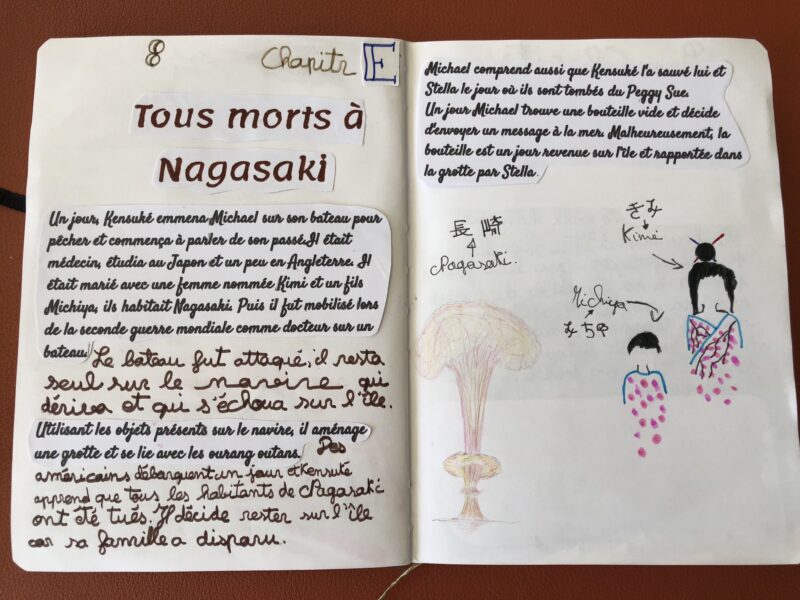 8 Chapitr E
Tous morts à
Nagasaki
Un jour, Kensuké emmena Michael sur son bateau pour
pêcher et commença à parler de son passé.Il était
médecin, étudia au Japon et un peu en Angleterre. Il
était marié avec une femme nommée Kimi et un fils
Michiya, ils habitait Nagasaki. Puis il fut mobilisé lors
de la seconde guerre mondiale comme docteur sur un
bateau. Le bateau fut attaqué, il resta
seul sur le navire qui
dériva et qui s'échoua sur l'île.
Utilisant les objets présents sur le navire, il aménage
une grotte et se lie avec les ourang outans. Des
américains débarquent un jour et Kensuké
apprend que tous les habitants de Nagasaki
ont été tués. Il décide rester sur l'île
car sa famille a disparu.
Michael comprend aussi que Kensuké l'a sauvé lui et
Stella le jour où ils sont tombés du Peggy Sue.
Un jour Michael trouve une bouteille vide et décide
d'envoyer un message à la mer. Malheureusement, la
bouteille est un jour revenue sur l'île et rapportée dans
la grotte par Stella.
長崎
Nagasaki.
きみ
Kimi
Michiya
みちや